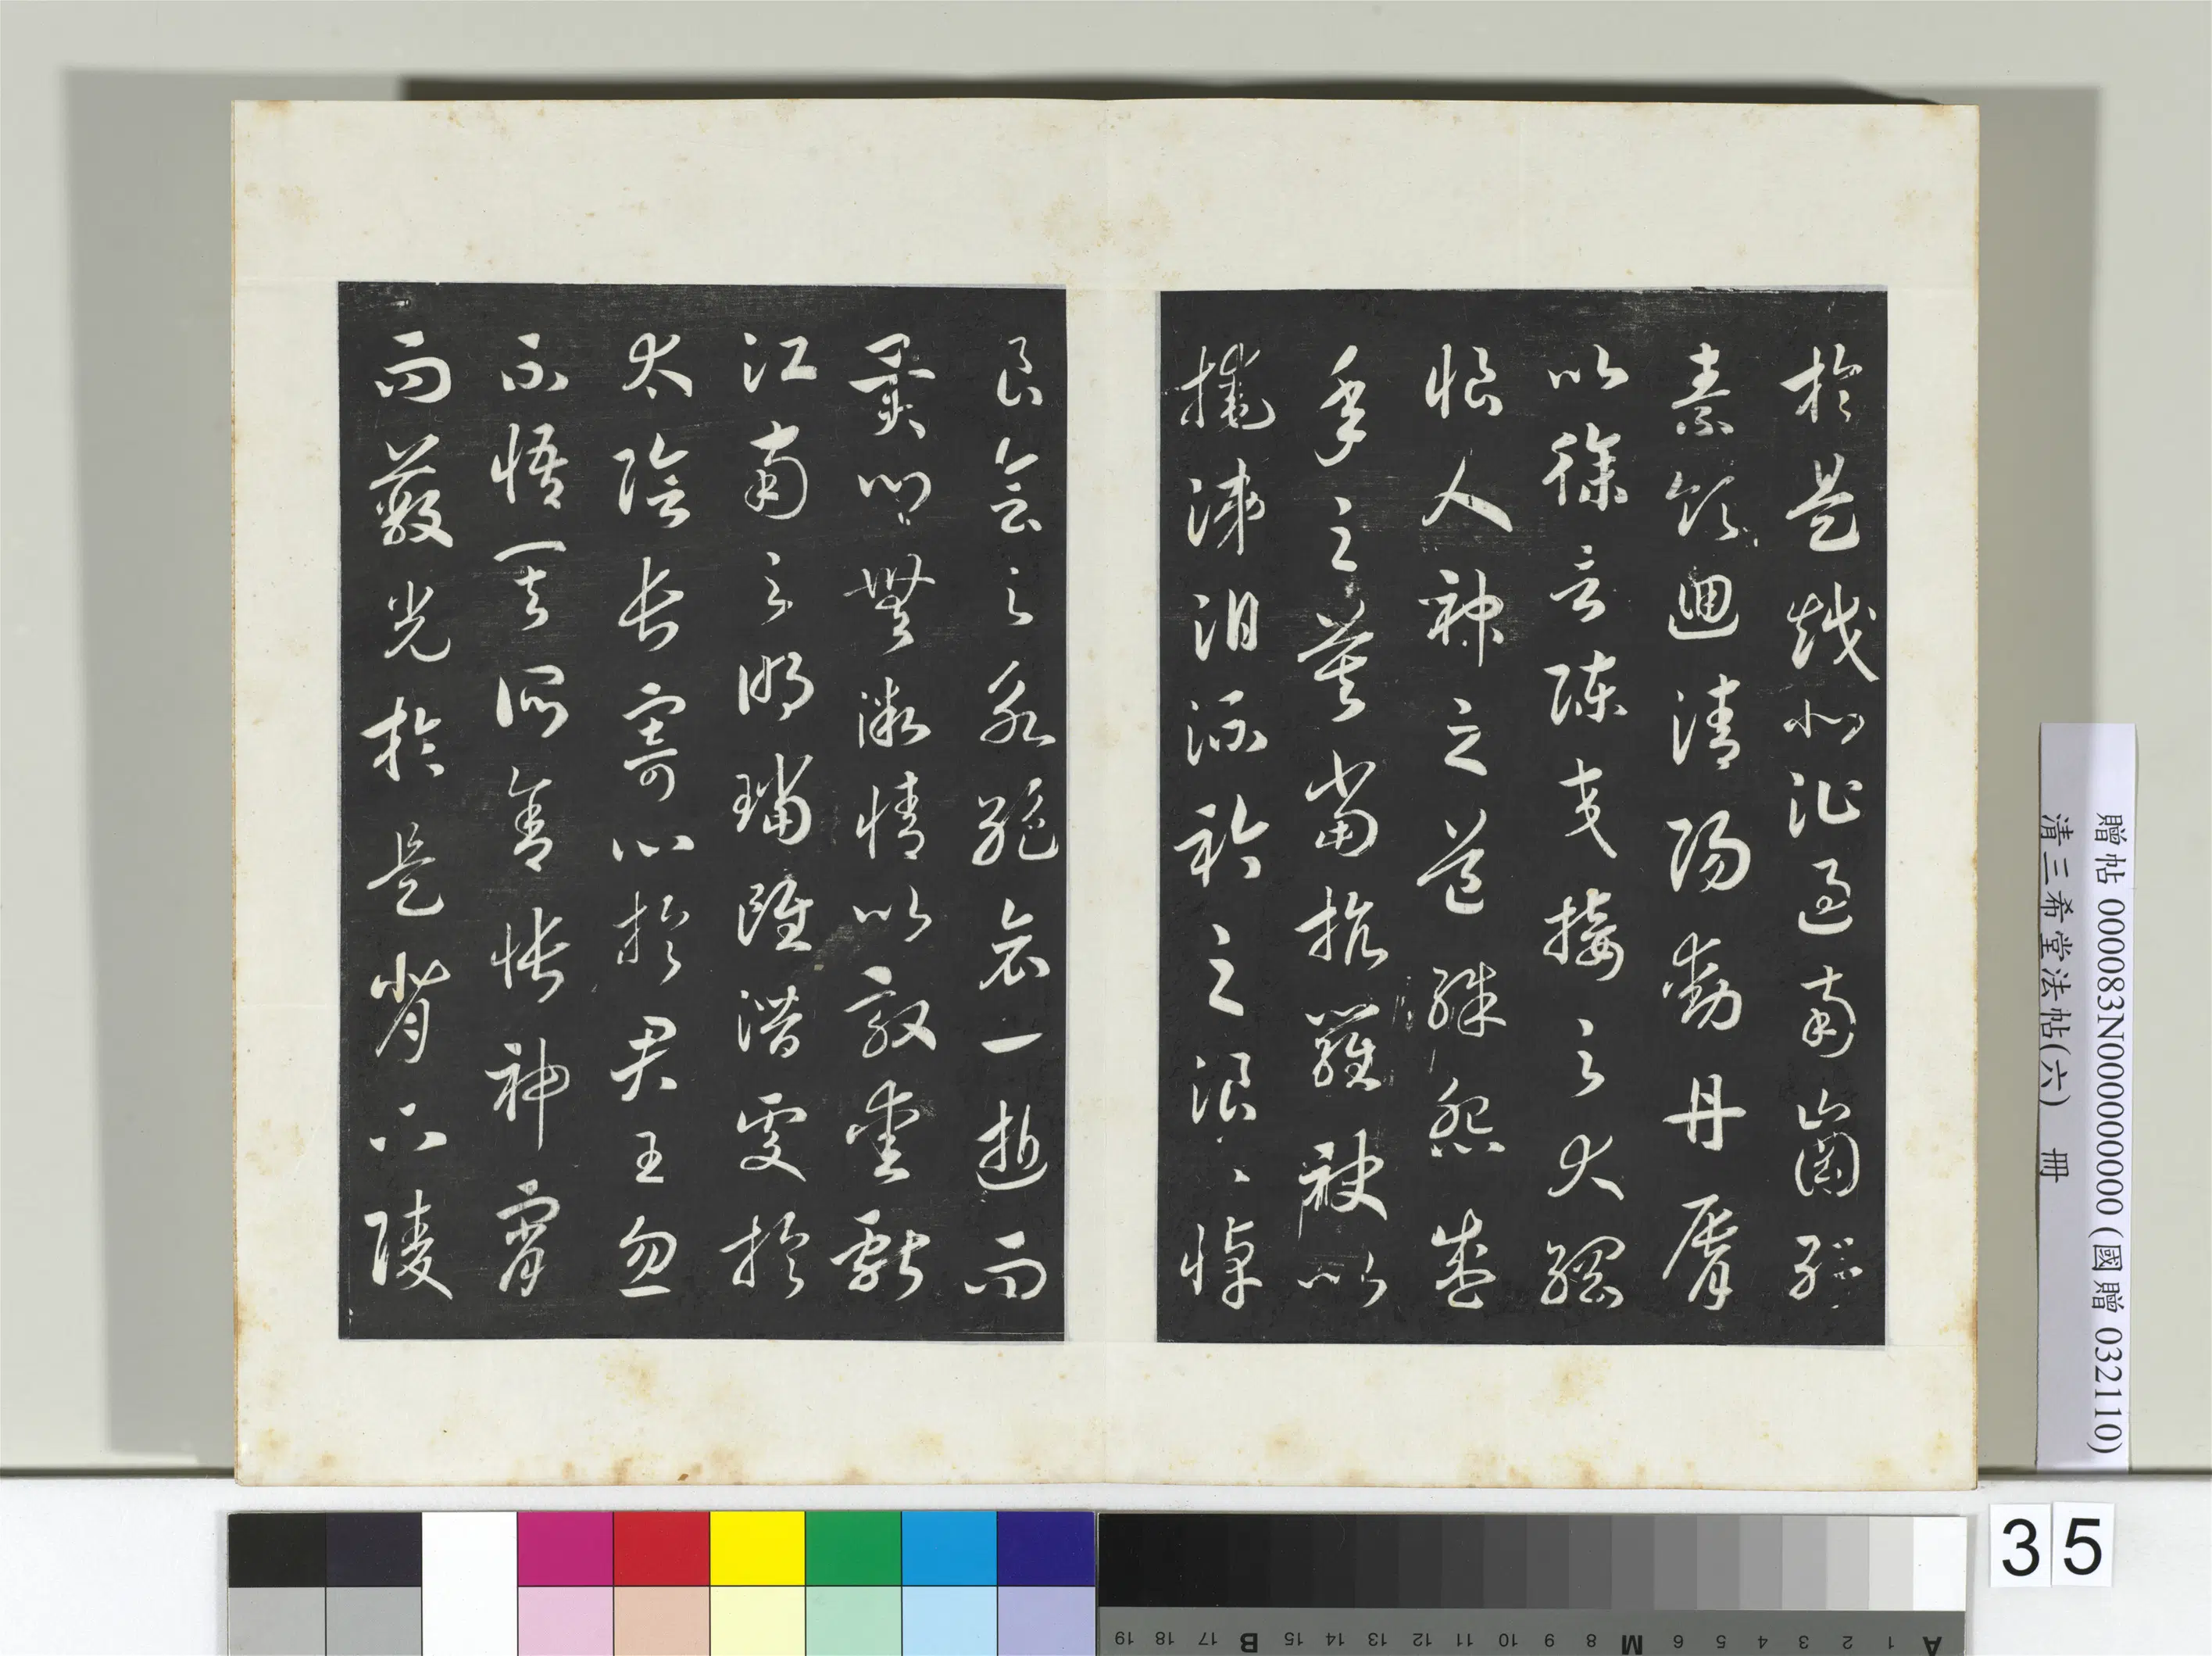 於是越北沚過南崗紆
素領迴清陽動丹脣
以徐言陳交接之大綱
恨人神之道殊怨盛
年之莫當抗羅袂以
掩涕泪流衿之浪〻悼
良會之永絕哀一逝而
異鄉無微情以效愛獻
江南之明璫雖潛處於
太陰長寄心於君王忽
不悟其所舍悵神宵
而蔽光於是背下陵
贈帖 000083N000000000 (國贈 032110)
清三希堂法帖(六) 冊
35
A 1 2 3 4 5 6 M 8 9 10 11 12 13 14 15 B 17 18 19